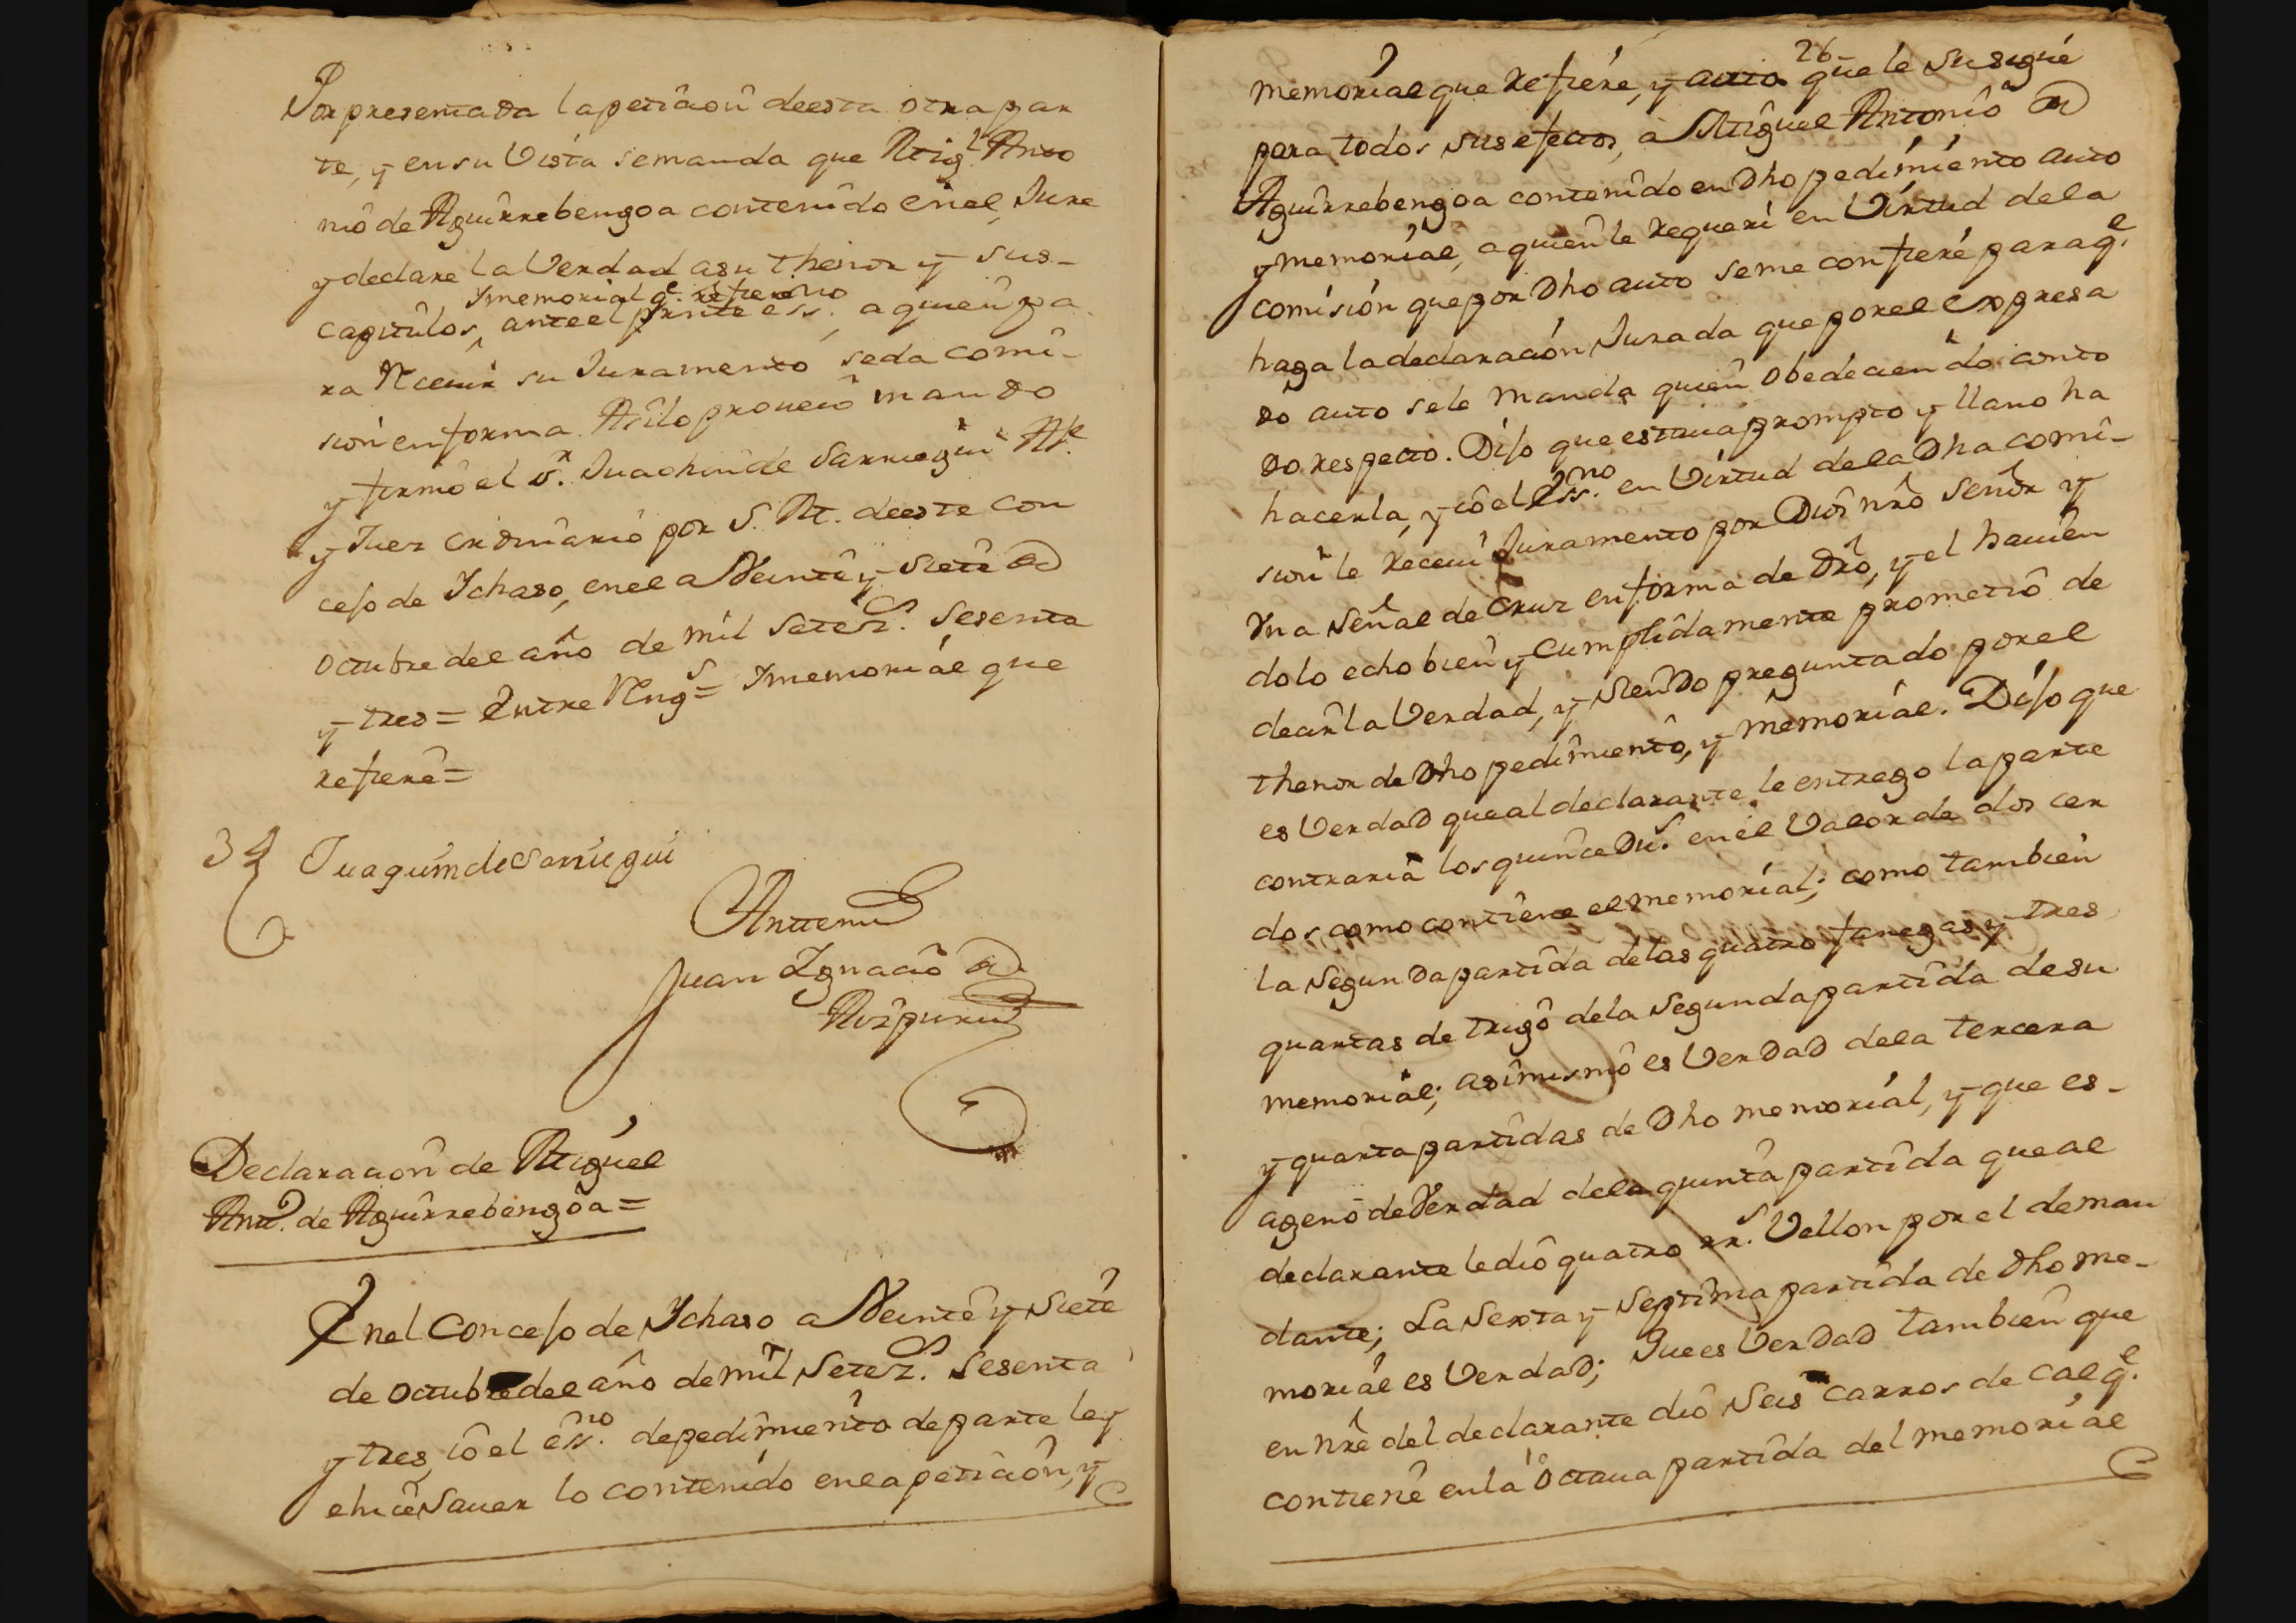 Por presentada la peticion de esta otra par
te, y en su Vista se manda que Mig.l Anto
nio de Aguirrebengoa contenido en el, Jure
y declare la Verdad a su thenor y sus-
Ymemorial q.e refiere
capitulos, ante el prnte ess.no a quien pa
ra Recevir su Juramento se da comi-
sion en forma. Asi lo proveio mando
y firmò el S.r Juachin de Sarriegui Alc.e
y Juez ordinario por S. M. de este Con
cejo de Ychaso, en el a Veinte y Siete de
octubre del año de mil Setez.s Sesenta
y tres = Entre Reng.s = Ymemorial que
refiere =
34
Juaquin de Sarriegui
Antemi
Juan Ignacio de
Aizpuru
Declaracion de Miguel
Ant.o de Aguirrebengoa =
En el Concejo de Ychaso a Veinte y Siete
de octubre del año de mil Setez.s Sesenta
y tres, io el ess.no de pedimiento de parte ley
e hice Saver lo contenido en la peticion, y
26
memorial que Refiere, y auto que le Susigue
para todos sus efectos, a Miguel Antonio de
Aguirrebengoa contenido en Dho pedimiento auto
y memorial, a quien le Requeri en Virtud de la
comisión que por Dho auto se me confiere para q.e
haga la declaración Jurada que por el Expresa
do auto se le manda quien obedeciendo con to
do respecto. Dijo que estava prompto y llano ha
hacerla, y io el Ess.no en Virtud de la Dha comi-
sion le Recevi Juramento por Dios nrô Señor y
Vna Señal de Cruz en forma de Drô, y el havien
dolo echo bien y Cumplidamente prometiô de
decir la Verdad, y Siendo preguntado por el
thenor de Dho pedimiento, y memorial. Dijo que
es Verdad que al declarante le entrego la parte
contraria los quince Du.s en el Valor de dos cer
dos, como contiene el memorial; como tambien
la Segunda partida de las quatro fanegas y tres
quartas de trigo de la Segunda partida de su
memorial; asimismo es Verdad de la tercera
y quarta partidas de Dho memorial, y que es-
ageno de Verdad de la quinta partida que al
declarante le diò quatro rr.s Vellon por el deman
dante; La Sexta y Septima partida de Dho me-
morial es Verdad; Que es Verdad tambien que
en nrê del declarante diô Seis carros de cal q.e
contiene en la octava partida del memorial